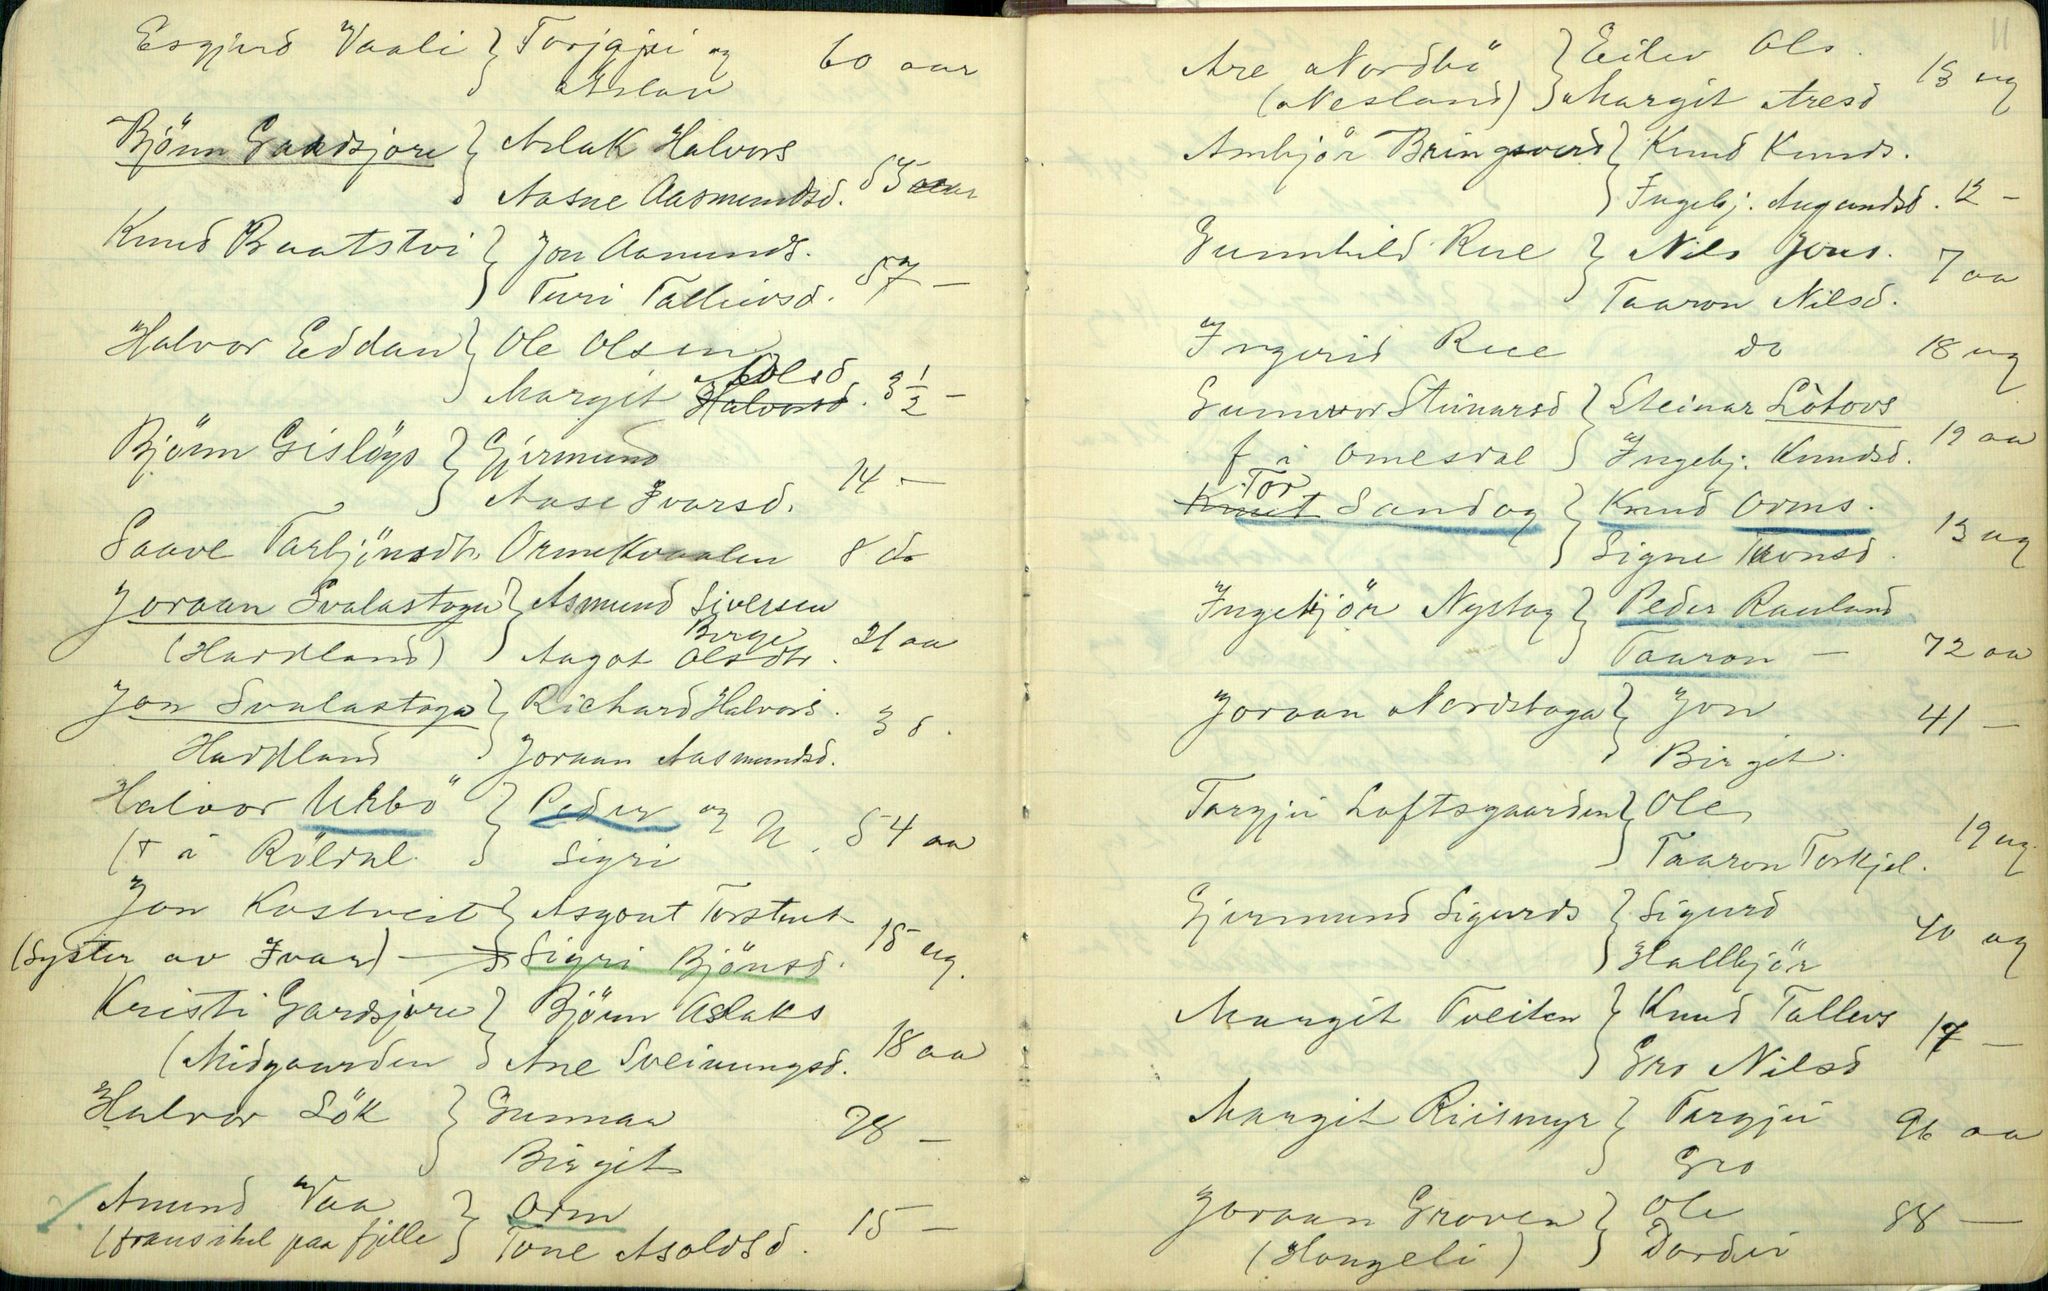 Esgjerd Vaali } Torgjei og 60 aar
Aslau
Bjönn Gardsjore } Aslak Halvors
Aasne Aasmundsd. 53 aar
Knud Braatstvi } Jon Aamunds.
Turi Talleivsd. 57 —
Halvor Eddan } Ole Olsen
Aolsd
Margit Halvorsd. 3 1/2 —
Bjönn Gislöys } Gjermund
Aase Ivarsd. 14 —
Saave Tarbjönsdtr. Ormekvaalen 8 do
Joraan Svalastoga } Asmund Siversen
Berge
(Hardland) Aagot Olsdtr. 21 aa
Jon Svalastoga } Richard Halvors. 38.
Hardland Joraan Aasmundsd.
Halvor Uhbö } Peder og N. 54 aa
(† i Röldal. Sigri
Jon Kostveit } Asgout Torsteit 15 ug.
(Syster av Ivar) — Sigri Bjönsd.
Kristi Gardsjore } Björn Aslaks
(Midgaarden Ane Sveinungsd. 18 aa
Halvor Sök } Gunnar 78 —
Birgit
Amund Vaa } Orm 15 —
(fraus ihel paa fjelle Tone Asoldsd.
11
Are Nordbö } Eilev Ols. 13 ug
(Nesland) Margit Aresd
Ambjör Bringsverd } Knud Knuds.
Ingebj. Augundsd. 12 —
Gunnhild Rue } Nils Jons. 7 aa
Taaron Nilsd.
Ingerid Rue do 18 ug
Gunnvor Steinarsd } Steinar Lotovs 19 aa
f i Omesdal Ingebj. Knudsd.
Tor
Knut Sandog } Knud Orms. 13 ug
Signe Tovnsd.
Ingebjör Nystog } Peder Rauland
Taaron — 72 aa
Joraan Nordstoga } Jon 41 —
Birgit.
Targjei Loftsgaarden } Ole 19 ug.
Taaron Torkjel.
Gjermund Sigurds } Sigurd 40 ug
Hallbjör
Margit Tveiten } Knud Tallevs 17 —
Gro Nilsd
Margit Riismyr } Targjei 96 aa
Gro
Joraan Groven } Ole 88 —
(Hongeli) Dordei